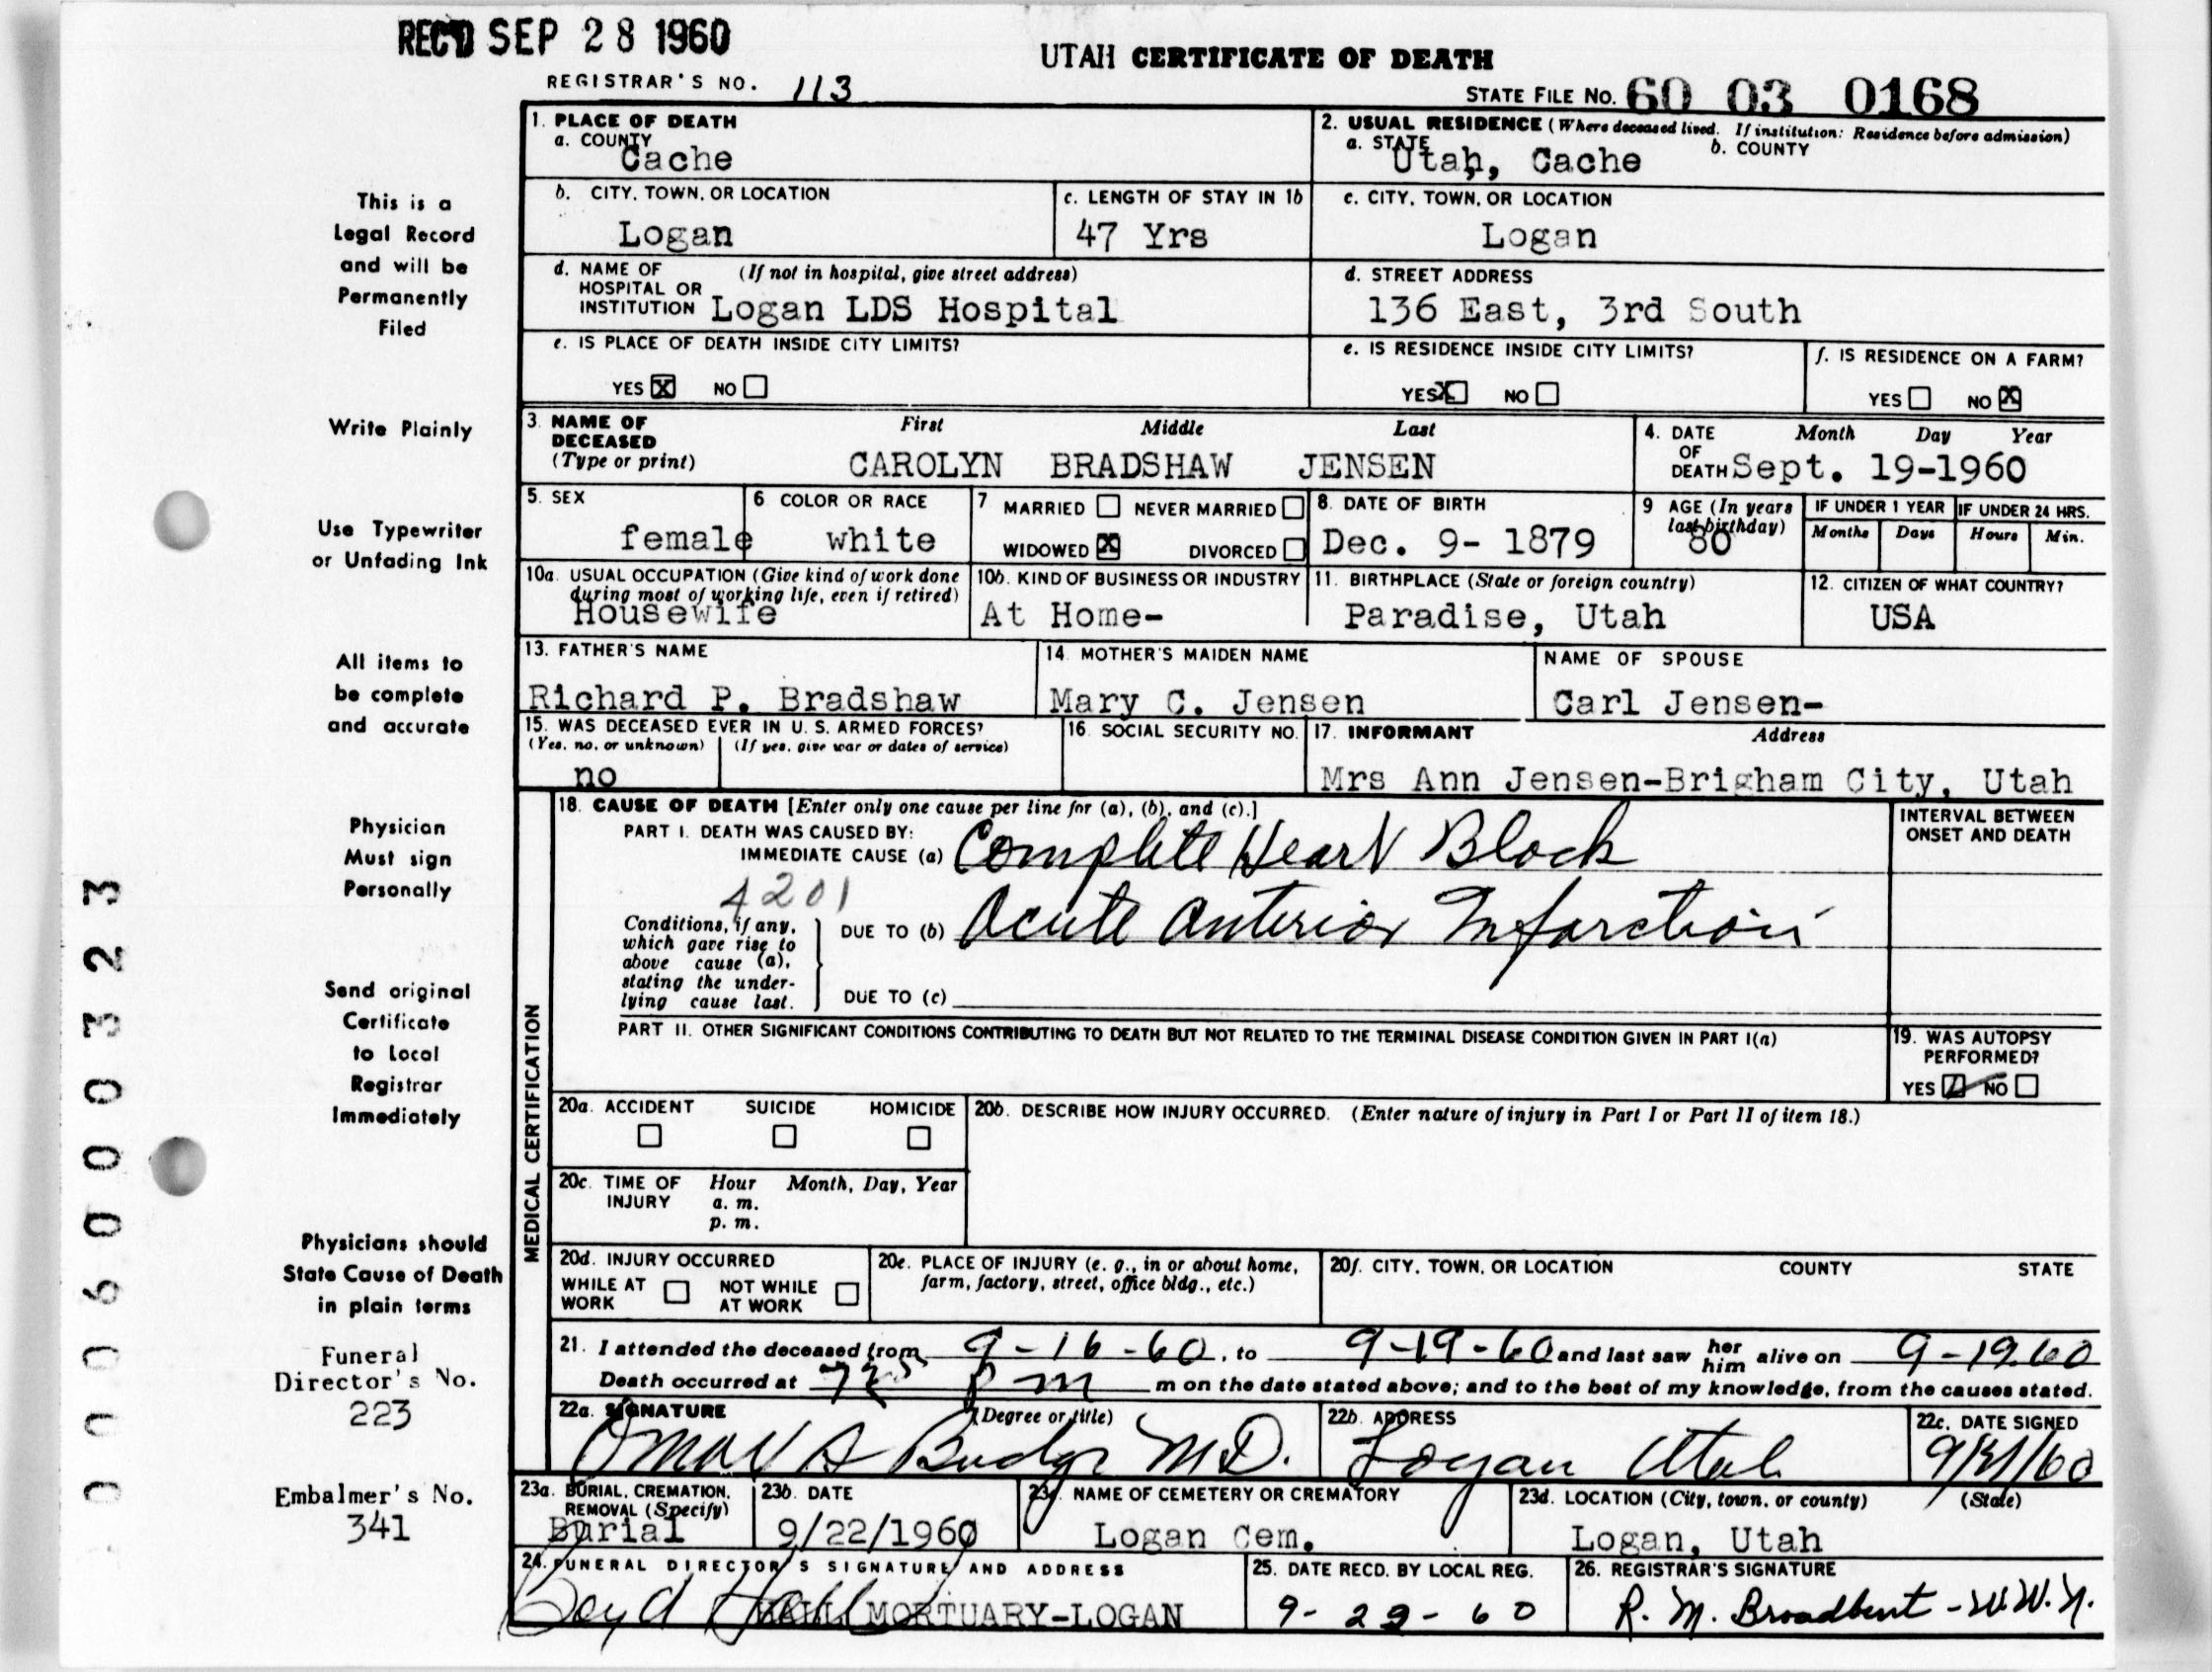 REC'D SEP 28 1960
UTAH CERTIFICATE OF DEATH
REGISTRAR'S NO. 113
STATE FILE NO. 60 03 0168
This is a
Legal Record
and will be
Permanently
Filed
Write Plainly
Use Typewriter
or Unfading Ink
All items to
be complete
and accurate
Physician
Must sign
Personally
Send original
Certificate
to Local
Registrar
Immediately
Physicians should
State Cause of Death
in plain terms
Funeral
Director's No.
223
Embalmer's No.
341
000600323
1. PLACE OF DEATH
a. COUNTY
Cache
2. USUAL RESIDENCE (Where deceased lived. If institution: Residence before admission)
a. STATE b. COUNTY
Utah, Cache
b. CITY, TOWN, OR LOCATION
Logan
c. LENGTH OF STAY IN 1b
47 Yrs
c. CITY, TOWN, OR LOCATION
Logan
d. NAME OF (If not in hospital, give street address)
HOSPITAL OR
INSTITUTION Logan LDS Hospital
d. STREET ADDRESS
136 East, 3rd South
e. IS PLACE OF DEATH INSIDE CITY LIMITS?
YES X NO
e. IS RESIDENCE INSIDE CITY LIMITS?
YES X NO
f. IS RESIDENCE ON A FARM?
YES NO X
3. NAME OF DECEASED (Type or print)
First Middle Last
CAROLYN BRADSHAW JENSEN
4. DATE OF DEATH Month Day Year
Sept. 19-1960
5. SEX
female
6 COLOR OR RACE
white
7 MARRIED NEVER MARRIED
WIDOWED X DIVORCED
8. DATE OF BIRTH
Dec. 9- 1879
9 AGE (In years last birthday)
80
IF UNDER 1 YEAR IF UNDER 24 HRS.
Months Days Hours Min.
10a. USUAL OCCUPATION (Give kind of work done
during most of working life, even if retired)
Housewife
10b. KIND OF BUSINESS OR INDUSTRY
At Home-
11. BIRTHPLACE (State or foreign country)
Paradise, Utah
12. CITIZEN OF WHAT COUNTRY?
USA
13. FATHER'S NAME
Richard P. Bradshaw
14. MOTHER'S MAIDEN NAME
Mary C. Jensen
NAME OF SPOUSE
Carl Jensen-
15. WAS DECEASED EVER IN U. S. ARMED FORCES?
(Yes, no, or unknown) (If yes, give war or dates of service)
no
16. SOCIAL SECURITY NO.
17. INFORMANT Address
Mrs Ann Jensen-Brigham City, Utah
MEDICAL CERTIFICATION
18. CAUSE OF DEATH [Enter only one cause per line for (a), (b), and (c).]
PART I. DEATH WAS CAUSED BY:
IMMEDIATE CAUSE (a) Complete Heart Block
4201
Conditions, if any,
which gave rise to
above cause (a),
stating the under-
lying cause last.
DUE TO (b) Acute Anterior Infarction
DUE TO (c)
INTERVAL BETWEEN
ONSET AND DEATH
PART II. OTHER SIGNIFICANT CONDITIONS CONTRIBUTING TO DEATH BUT NOT RELATED TO THE TERMINAL DISEASE CONDITION GIVEN IN PART I(a)
19. WAS AUTOPSY
PERFORMED?
YES NO
20a. ACCIDENT SUICIDE HOMICIDE
20b. DESCRIBE HOW INJURY OCCURRED. (Enter nature of injury in Part I or Part II of item 18.)
20c. TIME OF INJURY Hour Month, Day, Year
a. m.
p. m.
20d. INJURY OCCURRED
WHILE AT WORK NOT WHILE AT WORK
20e. PLACE OF INJURY (e. g., in or about home,
farm, factory, street, office bldg., etc.)
20f. CITY, TOWN, OR LOCATION COUNTY STATE
21. I attended the deceased from 9-16-60, to 9-19-60 and last saw her him alive on 9-19.60
Death occurred at P m m on the date stated above; and to the best of my knowledge, from the causes stated.
22a. SIGNATURE (Degree or title)
Omar S Budge M.D.
22b. ADDRESS
Logan Utah
22c. DATE SIGNED
23a. BURIAL, CREMATION,
REMOVAL (Specify)
Burial
23b. DATE
9/22/1960
23c. NAME OF CEMETERY OR CREMATORY
Logan Cem.
23d. LOCATION (City, town, or county) (State)
Logan, Utah
24. FUNERAL DIRECTOR'S SIGNATURE AND ADDRESS
Boyd Hall HALL MORTUARY-LOGAN
25. DATE RECD. BY LOCAL REG.
26. REGISTRAR'S SIGNATURE
R. M. Broadbent - W.W.N.